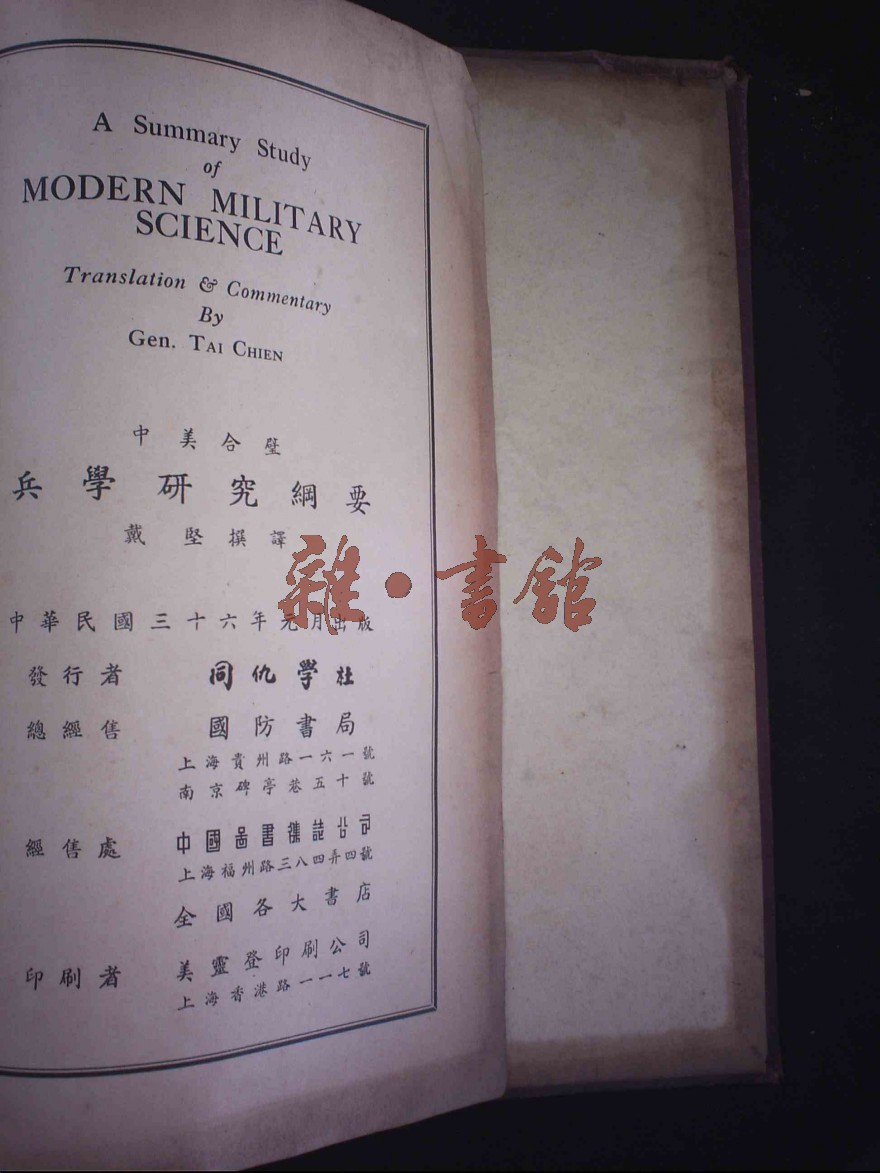 A Summary Study
of
MODERN MILITARY
SCIENCE
Translation & Commentary
By
Gen. TAI CHIEN
中美合璧
兵學研究綱要
戴堅撰譯
雜·書舘
中華民國三十六年元月出版
發行者 同仇學社
總經售 國防書局
上海貴州路一六一號
南京碑亭巷五十號
經售處 中國圖書雜誌公司
上海福州路三八四弄四號
全國各大書店
印刷者 美靈登印刷公司
上海香港路一一七號